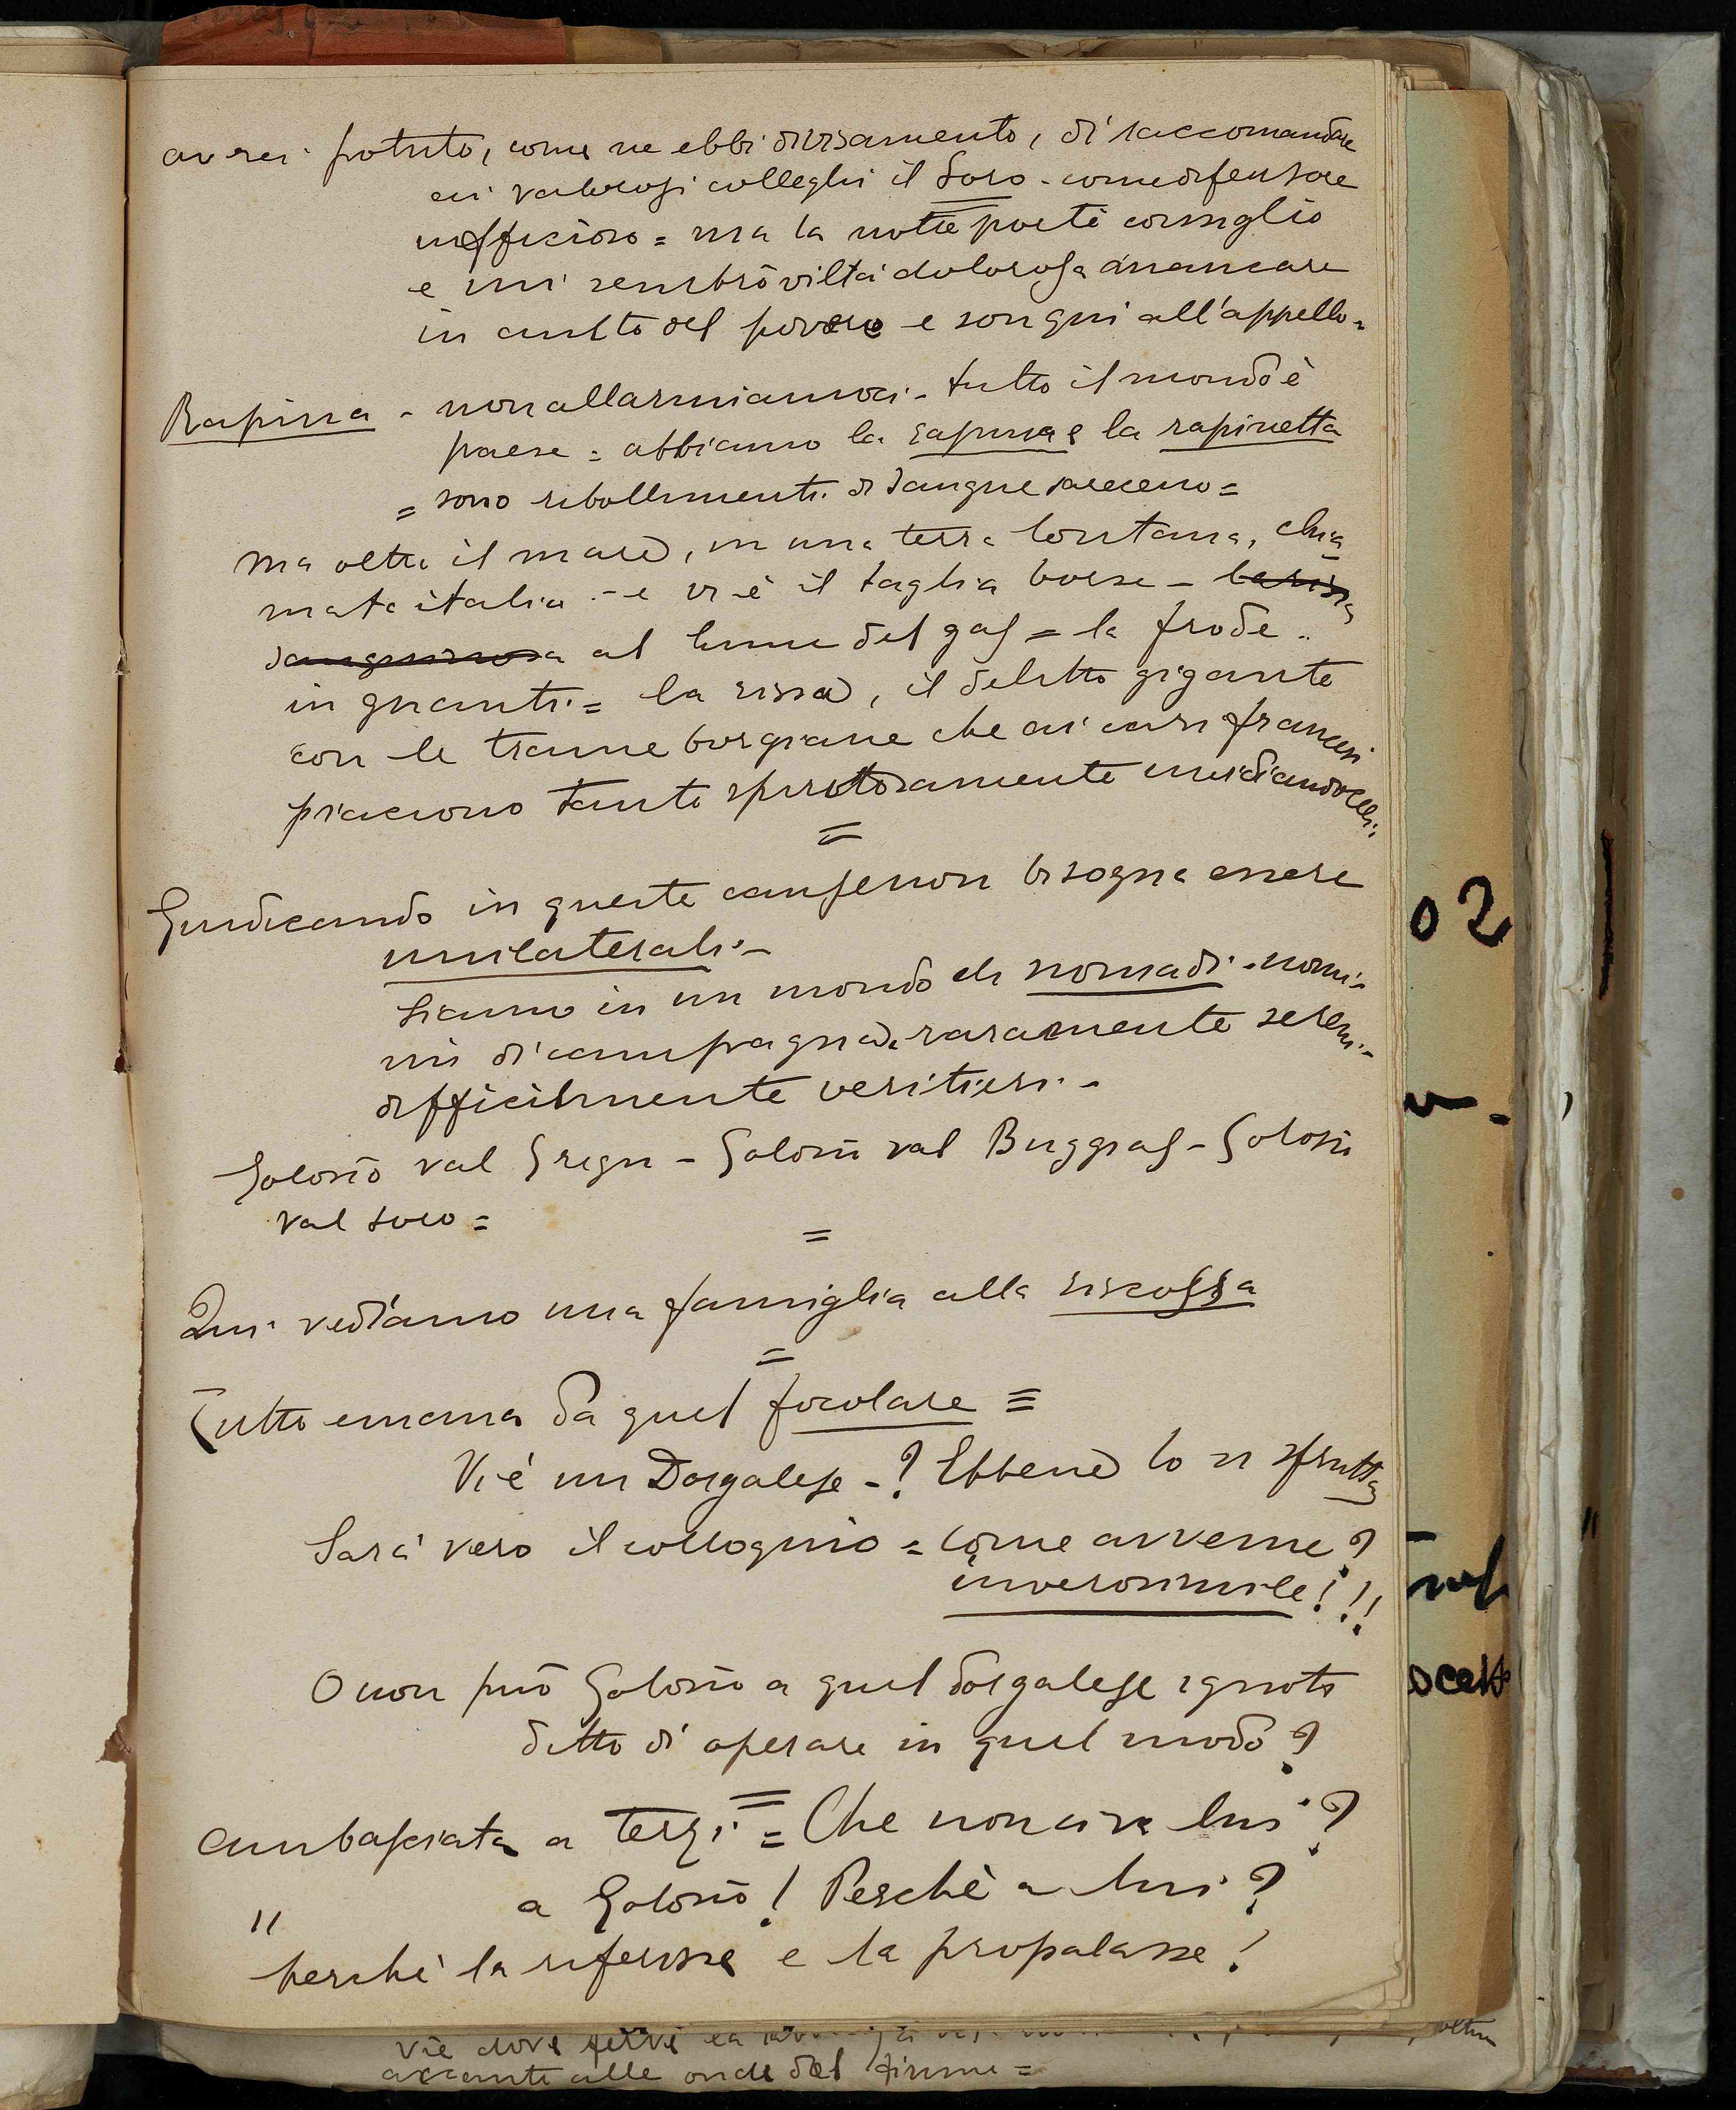 avrei potuto, come ne ebbi divisamento, di raccomandare
ai valorosi colleghi il Soro - come difensore
ufficioso = ma la notte portò consiglio
e mi sembrò viltà dolorosa mancare
in aiuto del povero e son qui all'appello =
Rapina - non allarmiamoci - tutto il mondo è
paese = abbiamo la rapina e la rapinetta
= sono ribollimenti di sangue saraceno =
ma oltre il mare, in una terra lontana, chia
mata italia - e vi è il taglia borse - la rissa
sanguinosa al lume del gas = la frode
in guanti = la rissa, il delitto gigante
con le trame borgiane che ai cari francesi
piacciono tanto spiritosamente
=
Giudicando in queste cause non bisogna essere
unilaterali -
Siamo in un mondo di nomadi - uomi-
ni di campagna, raramente sereni -
difficilmente veritieri -
Golosio val Gregu - Golosio val Buggras - Golosio
val Soro =
=
Qui vediamo una famiglia alla riscossa
=
Tutto emana da quel focolare =
Vi è un Dorgalese - ? Ebbene lo si sfrutta
Sarà vero il colloquio = come avvenne ?
inverosimile ! ! !
O non può Golosio a quel dorgalese ignoto
detto di operare in quel modo ?
=
ambasciata a terzi = Che non ai lui ?
" a Golosio ! Perchè a lui ?
perchè la riferisse e la propalasse !
02
accanto alle onde del fiume =